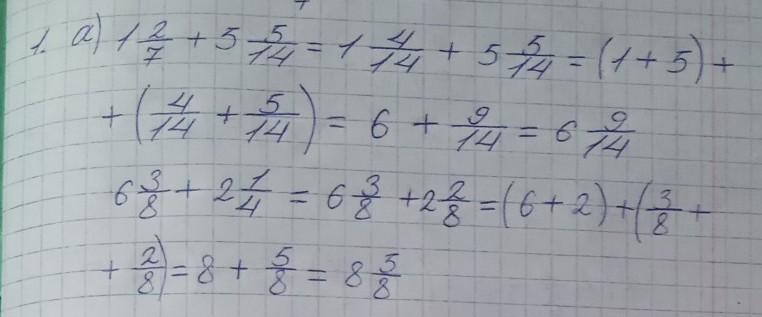 1. а) 1 2/7 + 5 5/14 = 1 4/14 + 5 5/14 = (1 + 5) +
+ (4/14 + 5/14) = 6 + 9/14 = 6 9/14
6 3/8 + 2 1/4 = 6 3/8 + 2 2/8 = (6 + 2) + (3/8 +
+ 2/8) = 8 + 5/8 = 8 5/8